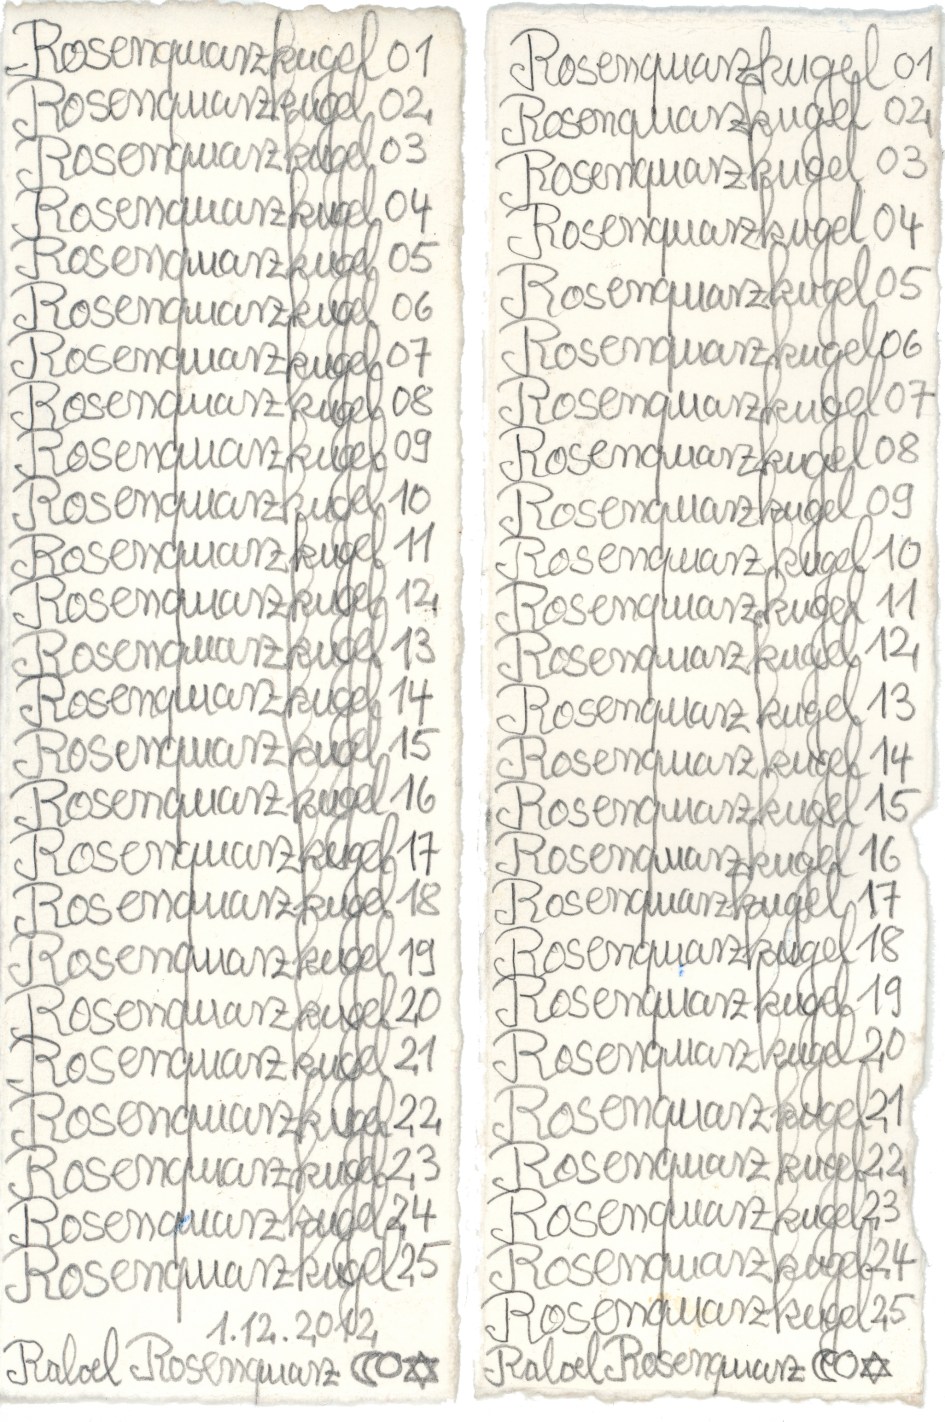 Rosenquarzkugel 01
Rosenquarzkugel 02
Rosenquarzkugel 03
Rosenquarzkugel 04
Rosenquarzkugel 05
Rosenquarzkugel 06
Rosenquarzkugel 07
Rosenquarzkugel 08
Rosenquarzkugel 09
Rosenquarzkugel 10
Rosenquarzkugel 11
Rosenquarzkugel 12
Rosenquarzkugel 13
Rosenquarzkugel 14
Rosenquarzkugel 15
Rosenquarzkugel 16
Rosenquarzkugel 17
Rosenquarzkugel 18
Rosenquarzkugel 19
Rosenquarzkugel 20
Rosenquarzkugel 21
Rosenquarzkugel 22
Rosenquarzkugel 23
Rosenquarzkugel 24
Rosenquarzkugel 25
1.12.2012
Rosenquarz
Rosenquarzkugel 01
Rosenquarzkugel 02
Rosenquarzkugel 03
Rosenquarzkugel 04
Rosenquarzkugel 05
Rosenquarzkugel 06
Rosenquarzkugel 07
Rosenquarzkugel 08
Rosenquarzkugel 09
Rosenquarzkugel 10
Rosenquarzkugel 11
Rosenquarzkugel 12
Rosenquarzkugel 13
Rosenquarzkugel 14
Rosenquarzkugel 15
Rosenquarzkugel 16
Rosenquarzkugel 17
Rosenquarzkugel 18
Rosenquarzkugel 19
Rosenquarzkugel 20
Rosenquarzkugel 21
Rosenquarzkugel 22
Rosenquarzkugel 23
Rosenquarzkugel 24
Rosenquarzkugel 25
Rosenquarz